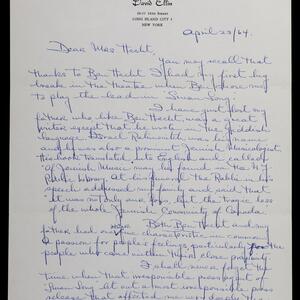 David Ellin
LONG ISLAND CITY 4
NEW YORK
April 23/64.
Dear Mrs Hecht,
You may recall that
thanks to Ben Hecht I had my first big
break in the theatre when Ben chose me
to play the lead in "Swan Song".
I have just lost my
father who like Ben Hecht, was a great
writer except that he wrote in the Yiddish
language. Israel Rabinovitch was his name
and he was also a prominent Jewish musicologist.
His book translated into English and called
"Of Jewish Music" may be found in the N.Y.
Public Library. At the Rabbi in his
speech addressed my family and said that
it was not only our loss, but the tragic loss
of the whole Jewish Community of Canada.
Both Ben Hecht and my
father had one characteristic in common.
A passion for people's feelings, particularly for the
people who came within their close proximity.
I shall never forget the
time when that irresponsible press agent of
"Swan Song" let out a most irresponsible press
release that affected me very deeply. The